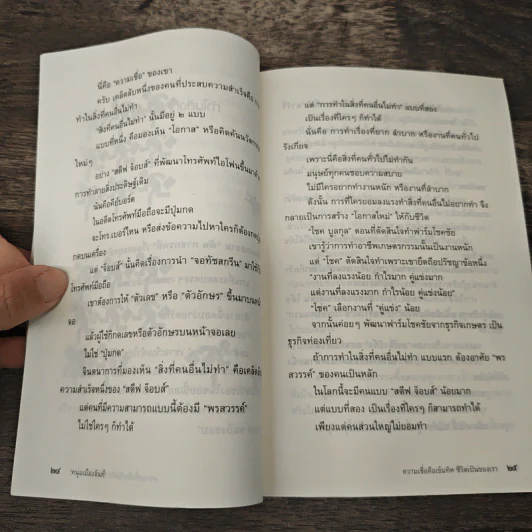 นี่คือ "ความเชื่อ" ของเขา
ครับ เคล็ดลับหนึ่งของคนที่ประสบความสำเร็จคือ
ทำในสิ่งที่คนอื่นไม่ทำ
"สิ่งที่คนอื่นไม่ทำ" นั้นมีอยู่ ๒ แบบ
แบบที่หนึ่ง คือมองเห็น "โอกาส" หรือคิดค้นนวัตกรรม
ใหม่ๆ
อย่าง "สตีฟ จ็อบส์" ที่พัฒนาโทรศัพท์ไอโฟนขึ้นมาด้วย
การทำลายสิ่งประดิษฐ์เดิม
นั่นคือคีย์บอร์ด
ในอดีตโทรศัพท์มือถือจะมีปุ่มกด
จะโทร.เบอร์ไหน หรือส่งข้อความไปหาใครก็ต้องกด
กดบนเครื่อง
แต่ "จ็อบส์" นั้นคิดเรื่องการนำ "จอทัชสกรีน" มาใช้กับ
โทรศัพท์มือถือ
เขาต้องการให้ "ตัวเลข" หรือ "ตัวอักษร" ขึ้นมาบนหน้า
จอ
แล้วผู้ใช้ก็กดเลขหรือตัวอักษรบนหน้าจอเลย
ไม่ใช่ "ปุ่มกด"
จินตนาการที่มองเห็น "สิ่งที่คนอื่นไม่ทำ" คือเคล็ดลับ
ความสำเร็จหนึ่งของ "สตีฟ จ็อบส์"
แต่คนที่มีความสามารถแบบนี้ต้องมี "พรสวรรค์"
ไม่ใช่ใครๆ ก็ทำได้
๒๔ หนุ่มเมืองจันท์
แต่ "การทำในสิ่งที่คนอื่นไม่ทำ" แบบที่สอง
เป็นเรื่องที่ใครๆ ก็ทำได้
นั่นคือ การทำเรื่องที่ยาก ลำบาก หรืองานที่คนทั่วไป
รังเกียจ
เพราะนี่คือสิ่งที่คนทั่วไปไม่ทำกัน
มนุษย์ทุกคนชอบความสบาย
ไม่มีใครอยากทำงานหนัก หรืองานที่ลำบาก
ดังนั้น การที่ใครยอมลงแรงทำสิ่งที่คนอื่นไม่อยากทำ จึง
กลายเป็นการสร้าง "โอกาสใหม่" ให้กับชีวิต
"โชค บูลกุล" ตอนที่ตัดสินใจทำฟาร์มโชคชัย
เขารู้ว่าการทำอาชีพเกษตรกรรมนั้นเป็นงานหนัก
แต่ "โชค" ตัดสินใจทำเพราะเขายึดถือปรัชญาข้อหนึ่ง
"งานที่ลงแรงน้อย กำไรมาก คู่แข่งมาก
แต่งานที่ลงแรงมาก กำไรน้อย คู่แข่งน้อย"
"โชค" เลือกงานที่ "คู่แข่ง" น้อย
จากนั้นค่อยๆ พัฒนาฟาร์มโชคชัยจากธุรกิจเกษตร เป็น
ธุรกิจท่องเที่ยว
ถ้าการทำในสิ่งที่คนอื่นไม่ทำ แบบแรก ต้องอาศัย "พร
สวรรค์" ของคนเป็นหลัก
ในโลกนี้จะมีคนแบบ "สตีฟ จ็อบส์" น้อยมาก
แต่แบบที่สอง เป็นเรื่องที่ใครๆ ก็สามารถทำได้
เพียงแต่คนส่วนใหญ่ไม่ยอมทำ
ความเชื่อคือเข็มทิศ ชีวิตเป็นของเรา ๒๕